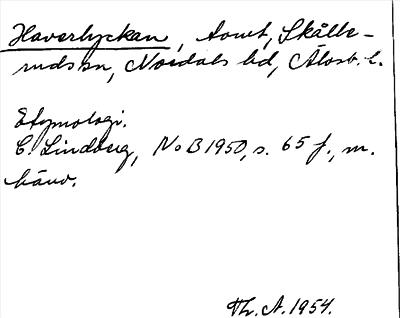 Haverlyckan, tomt, Skålle-
rudssn, Nordals hd, Älvsb. l.
Etymologi.
C. Lindberg, NoB 1950, s. 65 f., m.
hänv.
Th. A. 1954.